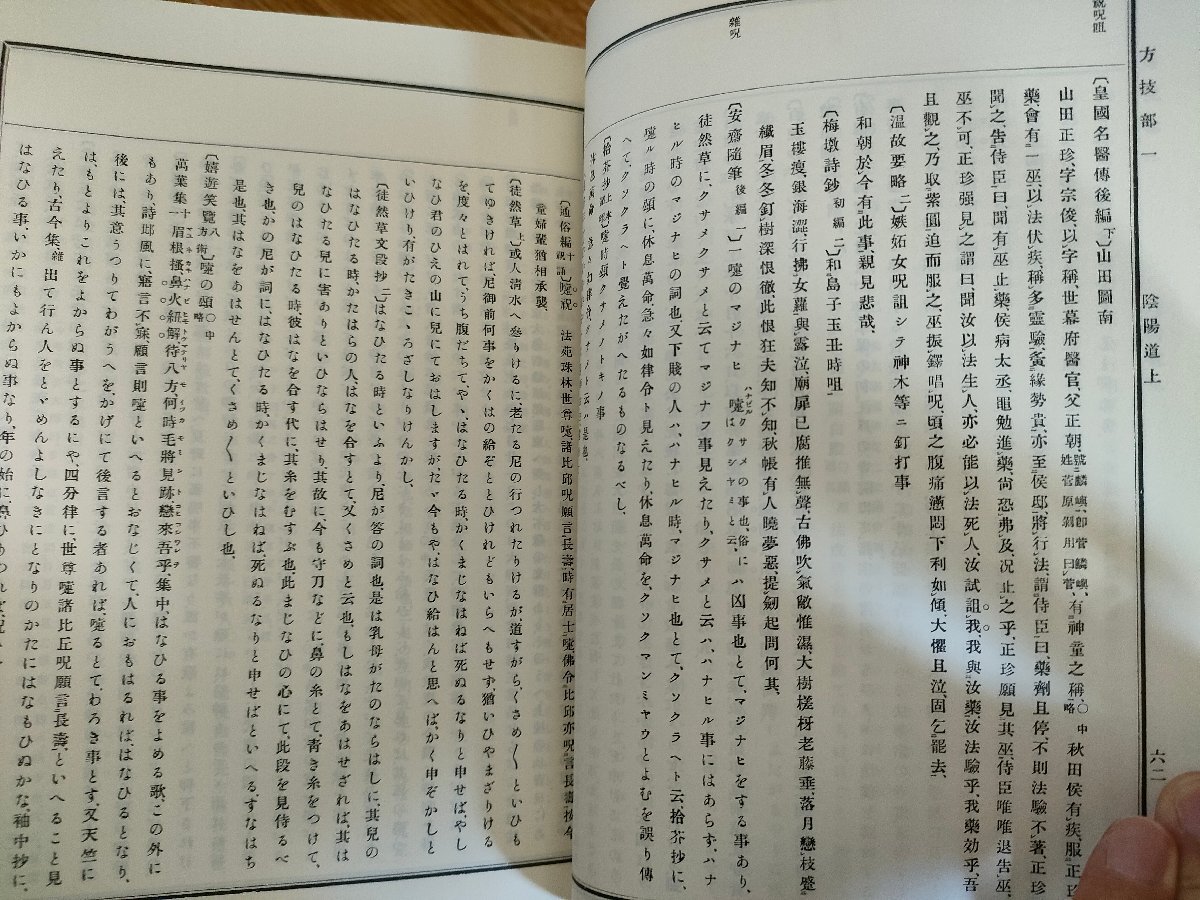 方技部一
陰陽道上
六二
親呪咀
〔皇國名醫傳後編下〕山田圖南
山田正珍、字宗俊、以字稱、世幕府醫官、父正朝、號麟嶼、卽菅麟嶼、姓菅原、剝用曰菅、有神童之稱、〇中略秋田侯有疾、服正珍
藥、會有一巫、以法伏疾、稱多靈驗、夤緣勢貴、亦至侯邸、將行法、謂侍臣曰、藥劑且停、不則法驗不著、正珍
聞之、告侍臣曰、聞有巫止藥、侯病太丞、黽勉進藥、尙恐弗及、況止之乎、正珍願見其巫、侍臣唯唯退告巫、
巫不可、正珍强見之、謂曰、聞汝以法生人、亦必能以法死人、汝試詛我、我與汝藥、汝法驗乎、我藥効乎、吾
且觀之、乃取紫圓追而服之、巫振鐸唱呪、頃之腹痛懣悶、下利如傾、大懼且泣、固乞罷去、
〔溫故要略二〕嫉妬女呪詛シラ神木等ニ釘打事
和朝於今有此事、親見悲哉、
〔梅墩詩鈔初編二〕和島子玉丑時咀
玉樓瘦、銀海澀、行拂女蘿與露泣、廟扉已腐推無聲、古佛吹氣敵惟濕、大樹槎枒老藤垂、落月戀枝蹙
纖眉、冬冬釘樹深恨徹、此恨狂夫知不知、秋帳有人曉夢惡、提劒起問何其、
雜呪
〔安齋隨筆後編一〕一嚏のマジナヒ 嚏はクサメの事也、俗にクシヤミと云、ハ凶事也とて、マジナヒをする事あり、
徒然草に、クサメクサメと云てマジナフ事見えたり、クサメと云ハ、ハナヒル事にはあらず、ハナ
ヒル時のマジナヒの詞也、又下賤の人ハ、ハナヒル時、マジナヒ也とて、クソクラヘト云、拾芥抄に、
嚏ル時の頌に、休息萬命急々如律令ト見えたり、休息萬命を、クソクマンミヤウとよむを誤り傳
へて、クソクラヘト覺えたがへたるものなるべし、
〔通俗編十祝誦〕嚏祝 法苑珠林世尊嚏、諸比邱呪願言長壽、時有居士嚏、佛令比邱亦呪言長壽、按今
童婦輩猶相承襲、
〔徒然草上〕或人淸水へ參りけるに、老たる尼の行つれたりけるが、道すがら、くさめ〳〵といひも
てゆきければ、尼御前何事をかくはの給ぞととひけれども、いらへもせず、猶いひやまざりける
を、度々とはれて、うち腹だちてや、ゝはなひたる時、かくまじなはねば死ぬるなりと申せば、やし
なひ君のひえの山に兒にておはしますが、たゞ今もや、はなひ給はんと思へば、かく申ぞかしと
いひけり、有がたきこゝろざしなりけんかし、
〔徒然草文段抄二〕はなひたる時といふより、尼が答の詞也、是は乳母がたのならはしに、其兒の
はなひたる時、かたはらの人はなを合すとて、又くさめと云也、もしはなをあはせざれば、其は
なひたる兒に害ありといひならはせり、其故に今も守刀などに、鼻の糸とて、靑き糸をつけて、
兒のはなひたる時、彼はなを合す代に、其糸をむすぶ也、此まじなひの心にて、此段を見侍るべ
き也、かの尼が詞に、はなひたる時、かくまじなはねば、死ぬるなりと申せばといへる、すなはち
是也、其はなをあはせんとて、くさめ〳〵といひし也、
〔嬉遊笑覽八方術〕嚏の頌〇中略
萬葉集十一眉根搔、鼻火紐解、待八方、何時毛將見跡、戀來吾乎、集中、はなひる事をよめる歌、この外に
もあり、詩邶風に、寤言不寐、願言則嚏といへるとおなじくて、人におもはるれば、はなひるとなり、
後には、其意うつりてわがうへを、かげにて後言する者あれば、嚏るとて、わろき事とす、又天竺に
は、もとよりこれをよからぬ事とするにや、四分律に、世尊嚏、諸比丘呪願言長壽、といへること見
えたり、古今集、雜出て行ん人をとゞめんよしなきにとなりのかたにはなもひぬかな、袖中抄に、
はなひる事、いかにもよからぬ事なり、年の始に、